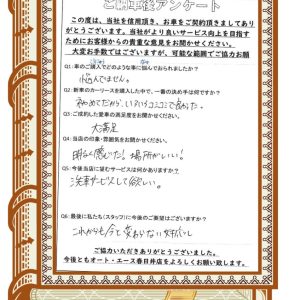 ご納車後アンケート
この度は、当社を信用頂き、お車をご契約頂きましてあり
がとうございます。当社がより良いサービス向上を目指す
ためにお客様からの貴重な意見をお聞かせください。
大変お手数ではございますが、可能な範囲でご協力お願
Q1: 車のご購入でどのような事に悩んでおられましたか?
悩んでません。
Q2: 新車のカーリースを購入した中で、一番の決め手は何ですか?
初めてだから、いろいろココで
Q3: ご成約した愛車の満足度をお聞かせください。
大満足
Q4: 当店の印象・雰囲気をお聞かせください。
明るく感じた! 場所がいい!
Q5: 今後当店に望むサービスは何かありますか?
洗車サービスして欲しい。
Q6: 最後に私たち(スタッフ)に今後のご要望はございますか?
これからも今と変わらない
ご協力いただきありがとうございました。
今後ともオート・エース春日井店をよろしくお願い致します。